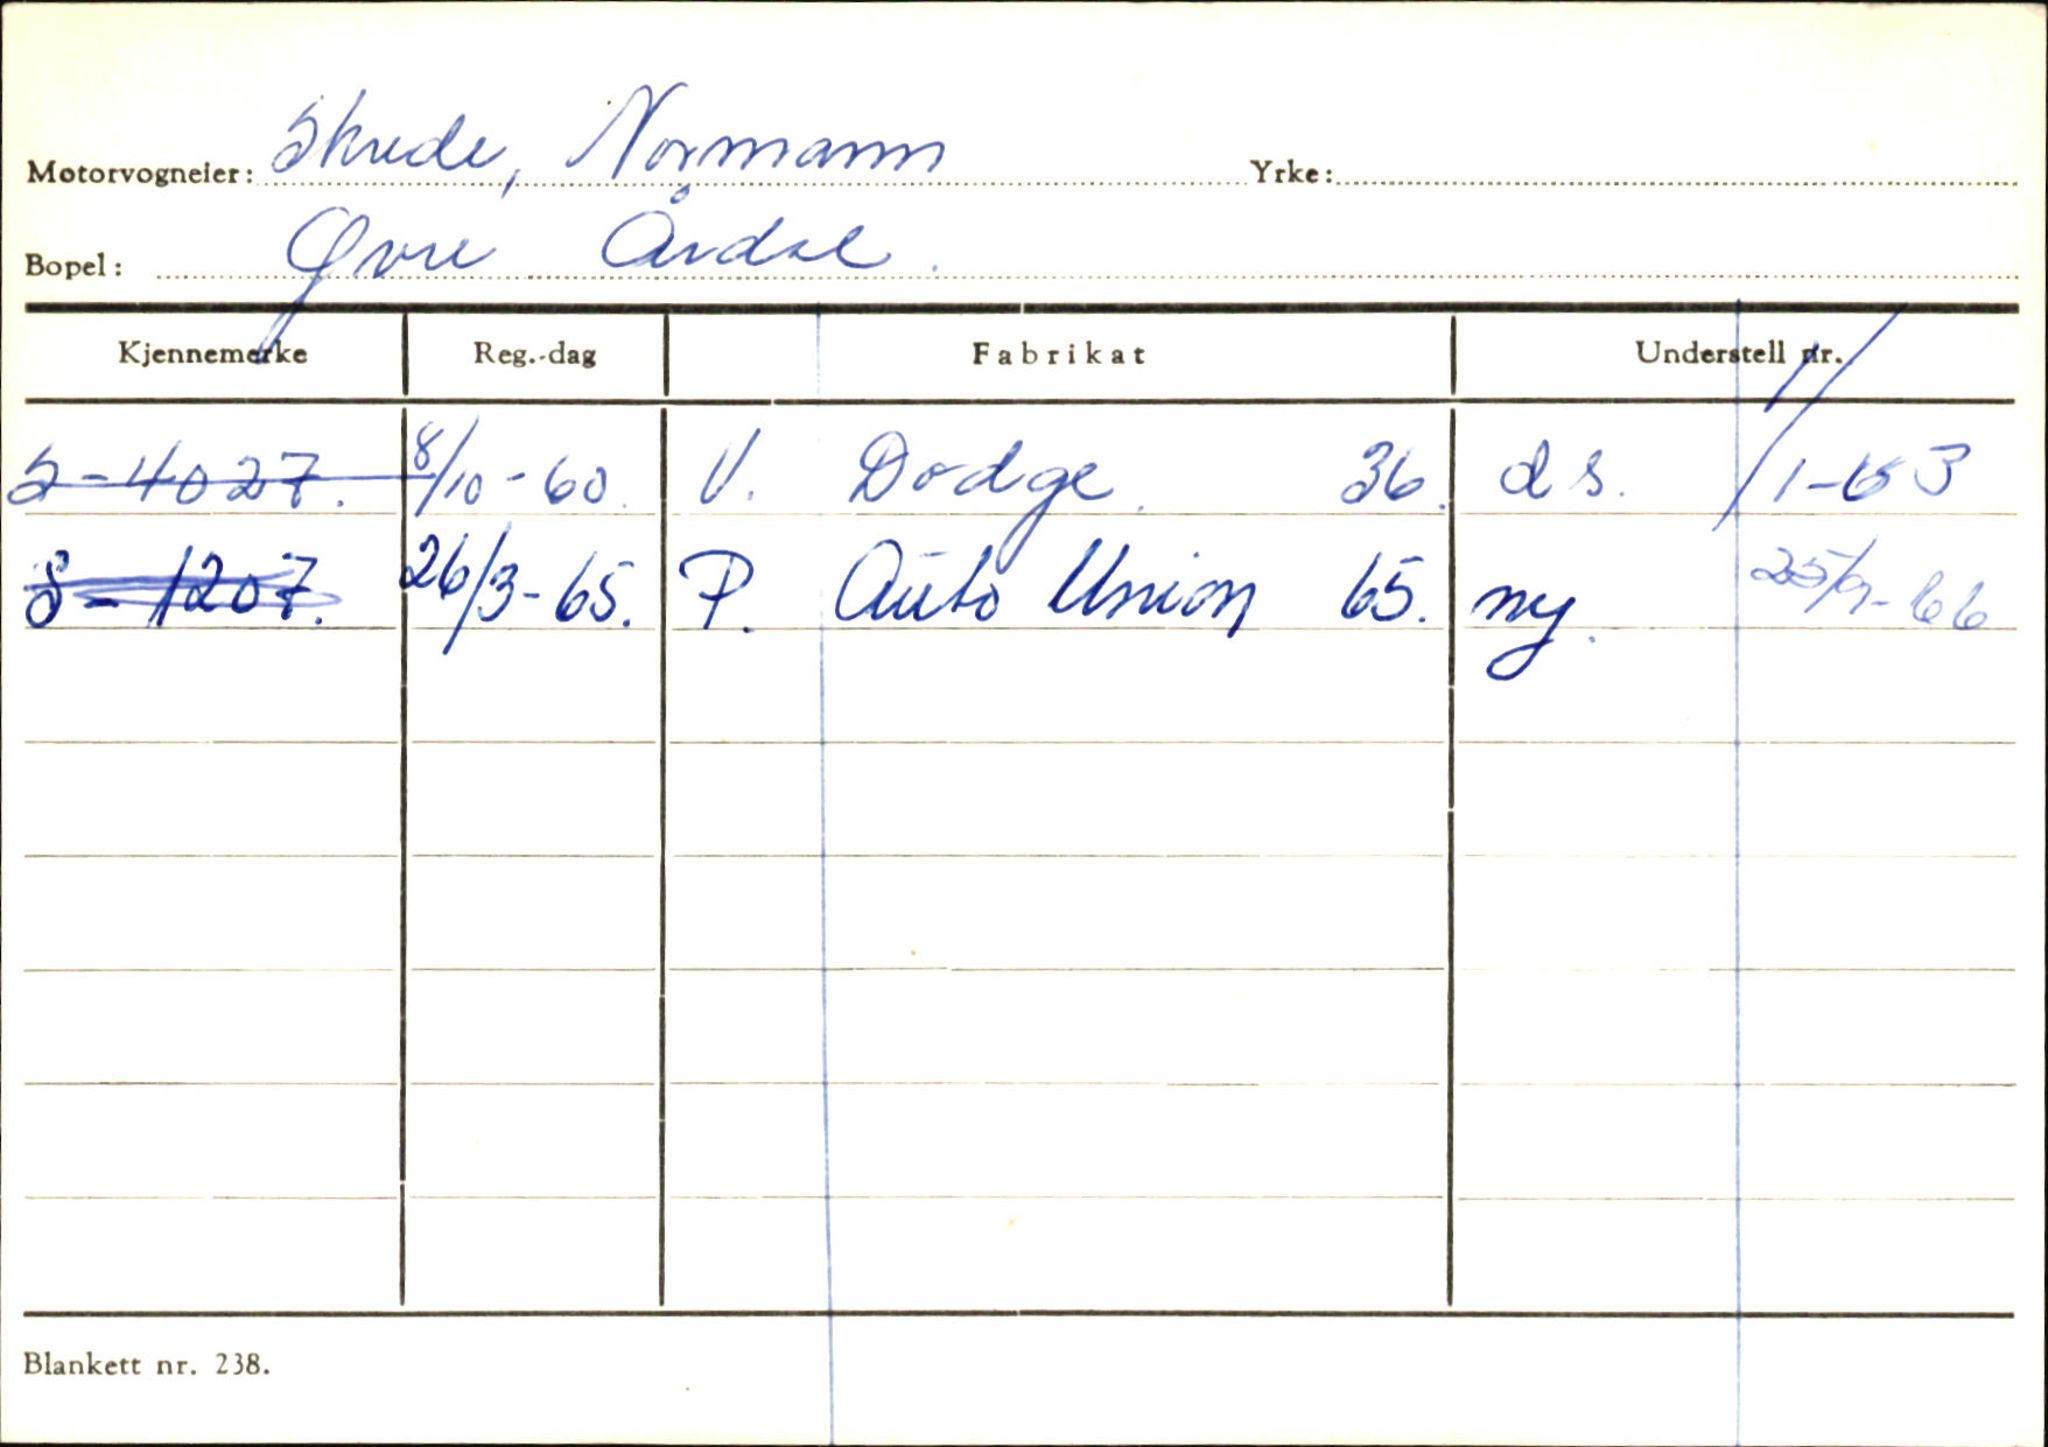 Motorvogneier: Skrede, Normann Yrke:
Bopel: Øvre Årdal.
Kjennemerke Reg.-dag Fabrikat Understell nr.
S-4027. 8/10-60. V. Dodge. 36. ds. 11/1-63
S-1207. 26/3-65. P. Auto Union 65. ny. 25/9-66
Blankett nr. 238.